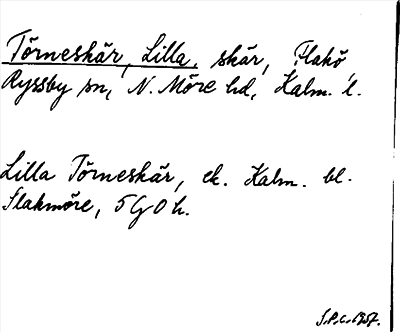 Törneskär, Lilla, skär, Flakö
Ryssby sn, N. Möre hd, Kalm. l.
Lilla Törneskär, ek. Kalm. bl.
Slakmöre, 5 G 0 h.
S.P.C. 1957.